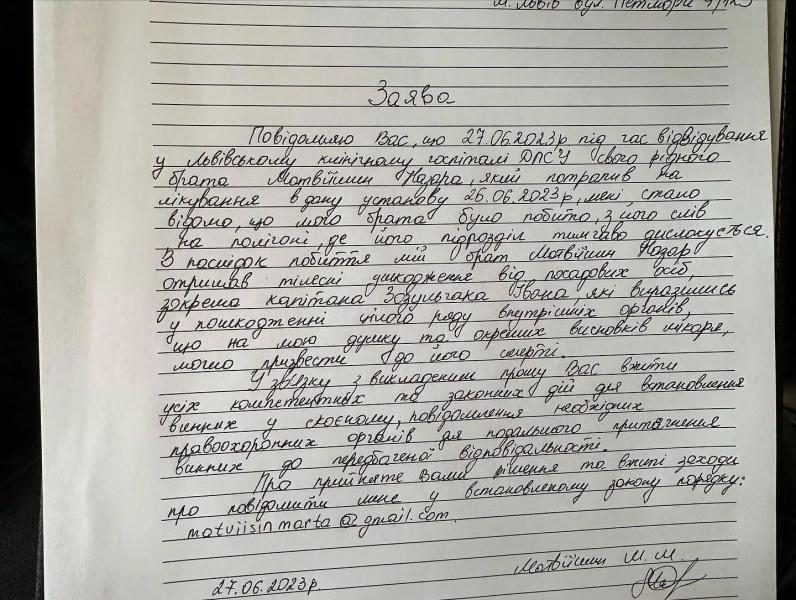 м. Львів вул.
Заява
Повідомляю Вас, що 27.06.2023р під час відвідування
у Львівському клінічному госпіталі ДПСУ свого рідного
брата Матвіїшин Назара, який потрапив на
лікування в дану установу 26.06.2023р, мені, стало
відомо, що мого брата було побито, з його слів
, на полігоні, де його підрозділ тимчаво дислокується.
В наслідок побиття мій брат Матвіїшин Назар
отримав тілесні ушкодження від посадових осіб,
зокрема капітана Зозульчака Івана які виразились
у пошкодженні цілого ряду внутрішніх органів,
що на мою думку та окремих висновків лікаря,
могло призвести до його смерті.
У зв'язку з викладеним прошу Вас вжити
усіх компетентних та законних дій для встановлення
винних у скоєному, повідомлення необхідних
правоохоронних органів для подальшого притягнення
винних до передбаченої відповідальності.
Про прийняте Вами рішення та вжиті заходи
про повідомити мене у встановленому закону порядку:
matviisinmarta@gmail.com.
Матвіїшин М. М.
27.06.2023р.